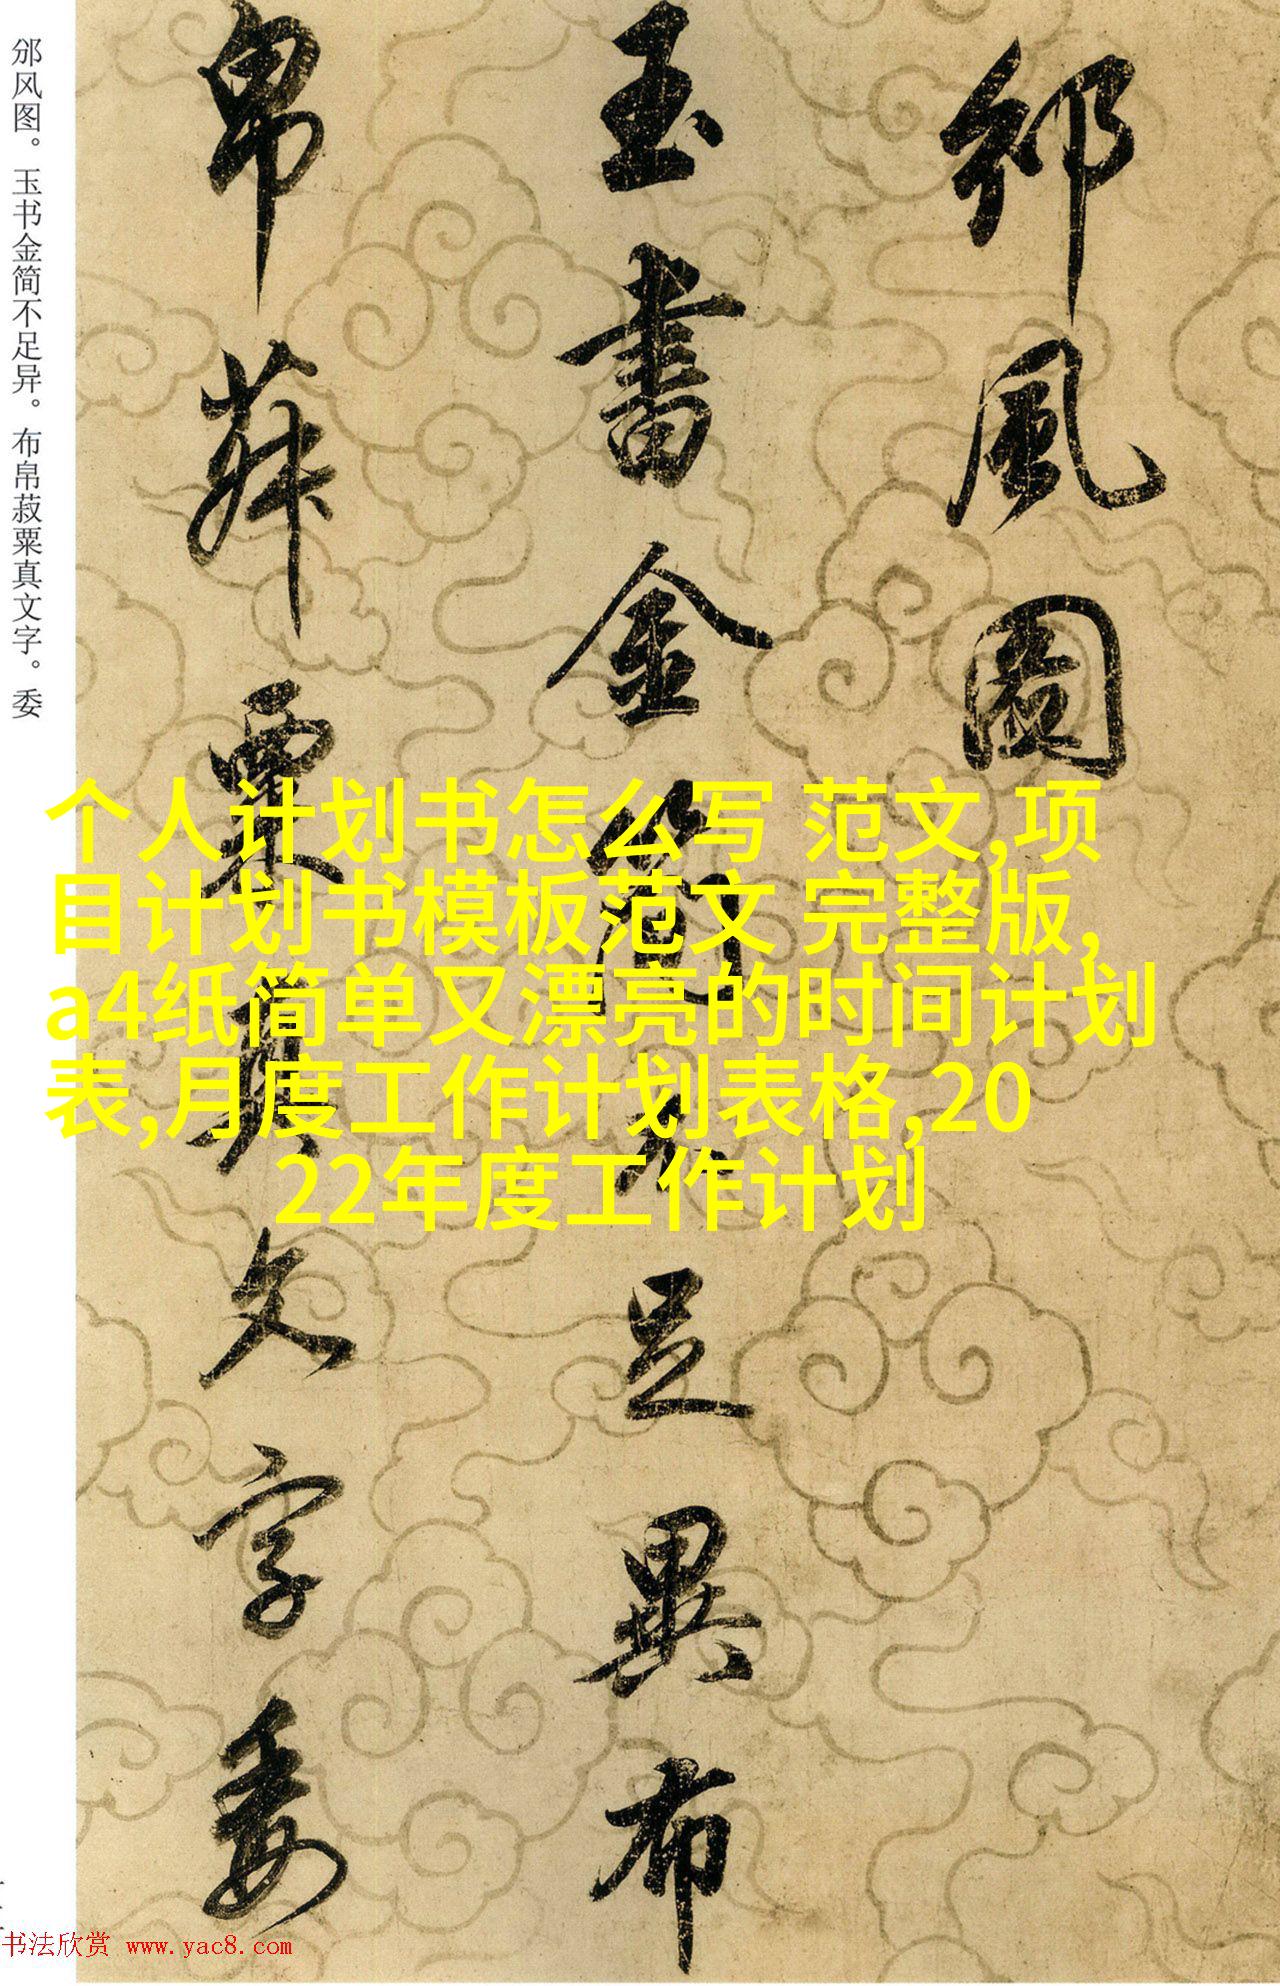 邠風圖
玉書金簡不足異布
帛菽粟真文字委
邠风图。玉书金简不足异。布帛菽粟真文字。委
个人计划书怎么写 范文,项
目计划书模板范文 完整版,
a4纸简单又漂亮的时间计划
表,月度工作计划表格,20
22年度工作计划
书法欣赏 www.yac8.com